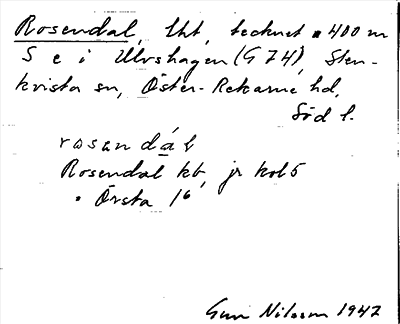 Rosendal, lht, tecknet 400 m
S e i Ulvshagen (G 74), Sten-
kvista sn, Öster-Rekarne hd,
Söd l.
rosendál
Rosendal kb, jr kol 5
" Örsta 1⁶
Gun Nilsson 1942